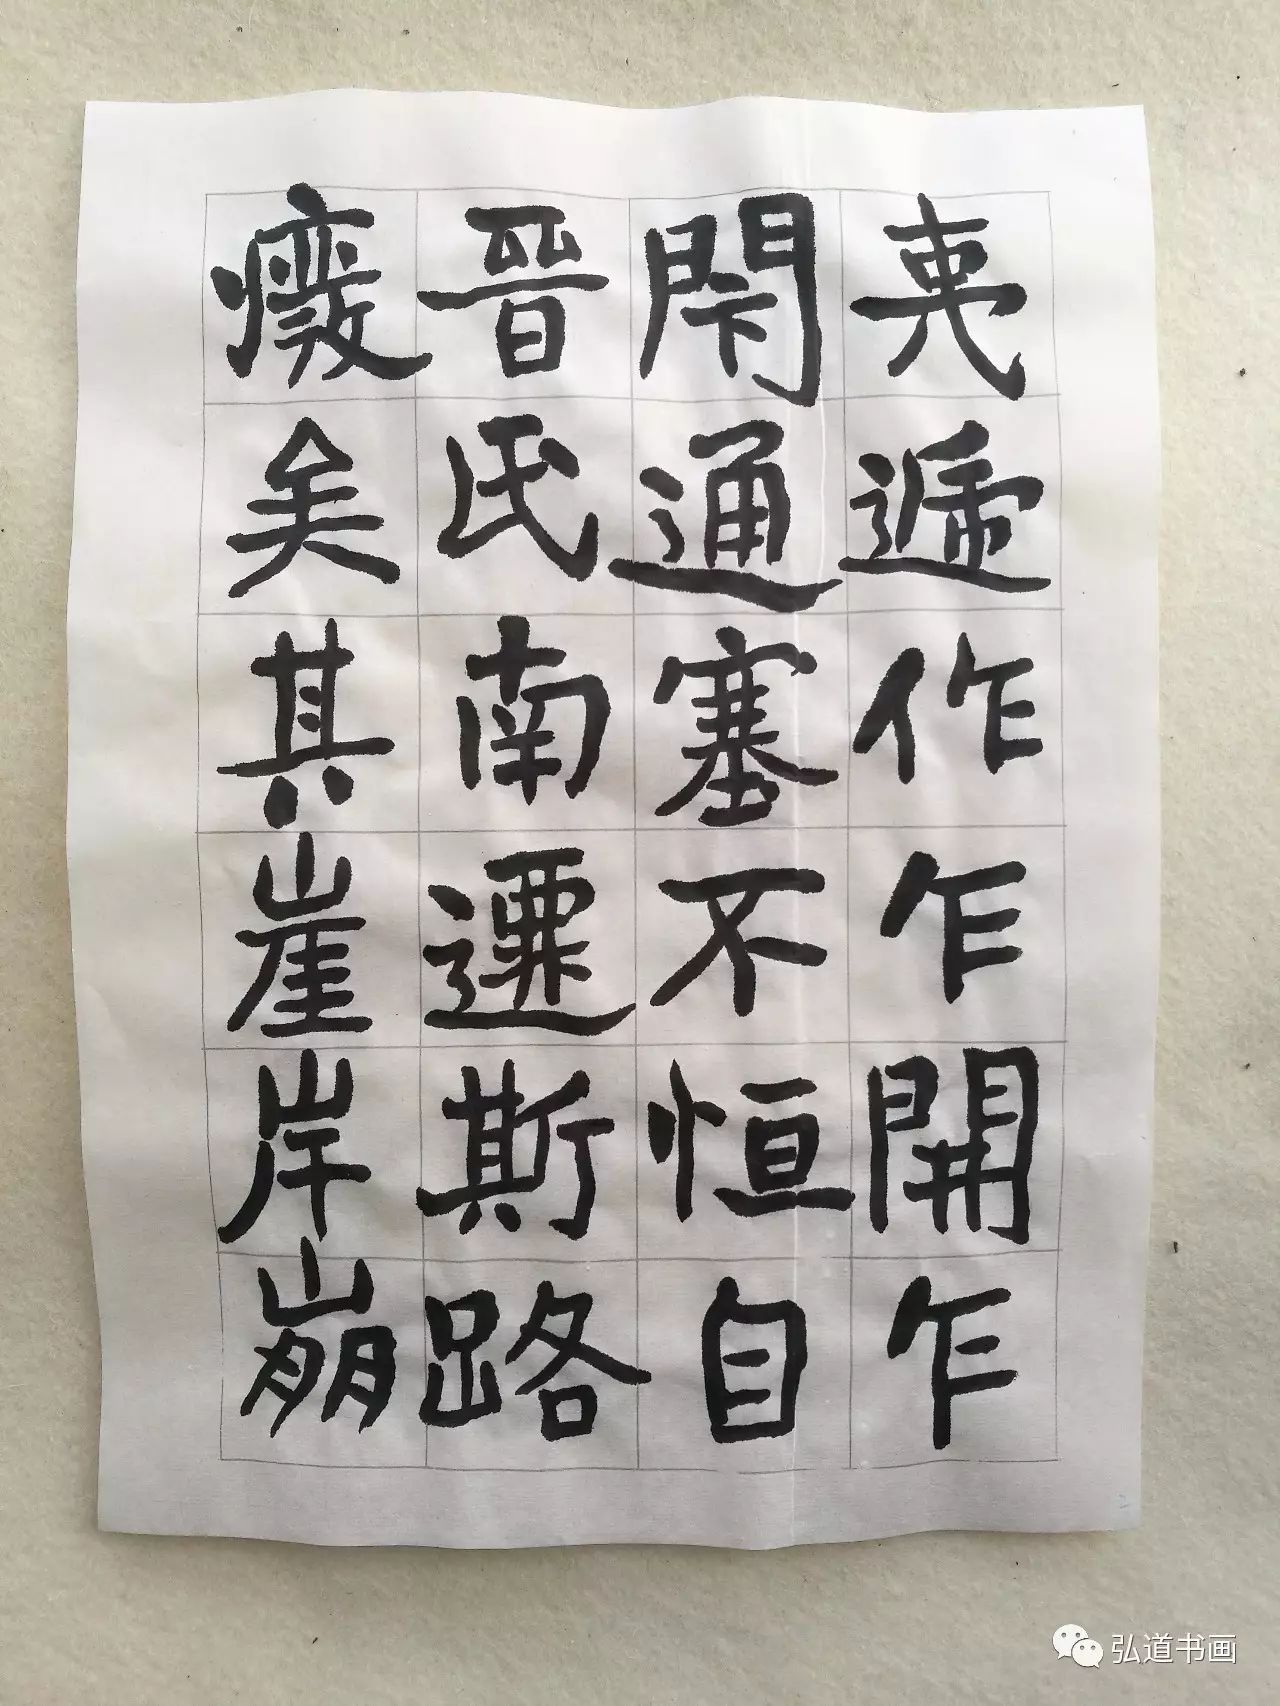 夷遞作乍開乍
閇通塞不恒自
晉氏南遷斯路
廢矣其崖岸崩
弘道书画